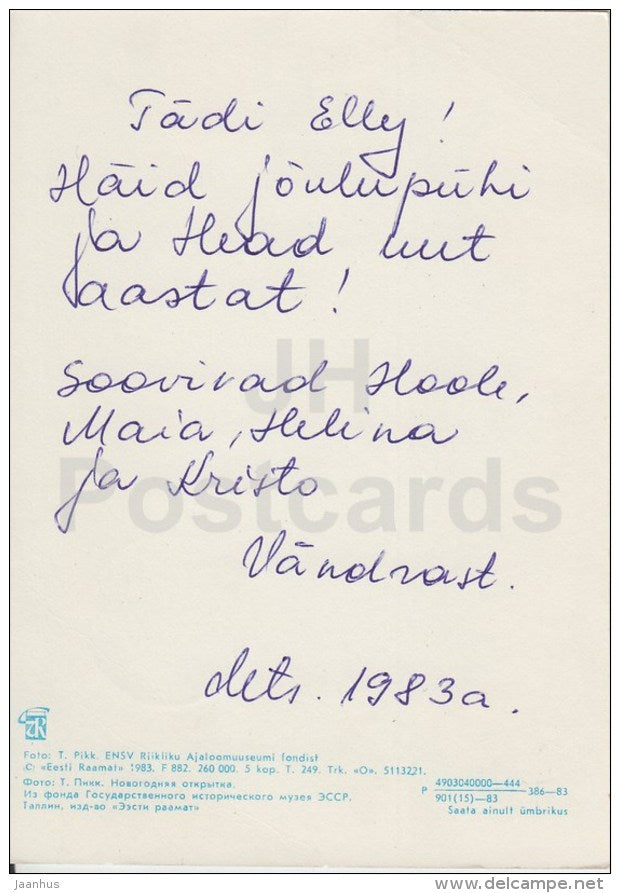 Tädi Elly!
Häid jõulupühi
ja Head uut
aastat!
Soovivad Hoole,
Maia, Helina
ja Kristo
Vändrast.
dets. 1983a.
JH
Postcards
Foto: T. Pikk. ENSV Riikliku Ajaloomuuseumi fondist
© «Eesti Raamat» 1983. F 882. 260 000. 5 kop. T. 249. Trk. «O». 5113221.
Фото: Т. Пикк. Новогодняя открытка.
Из фонда Государственного исторического музея ЭССР.
Таллин, изд-во «Ээсти раамат»
Р 4903040000—444 386—83
901(15)—83
Saata ainult ümbrikus
jaanhus
www.delcampe.net